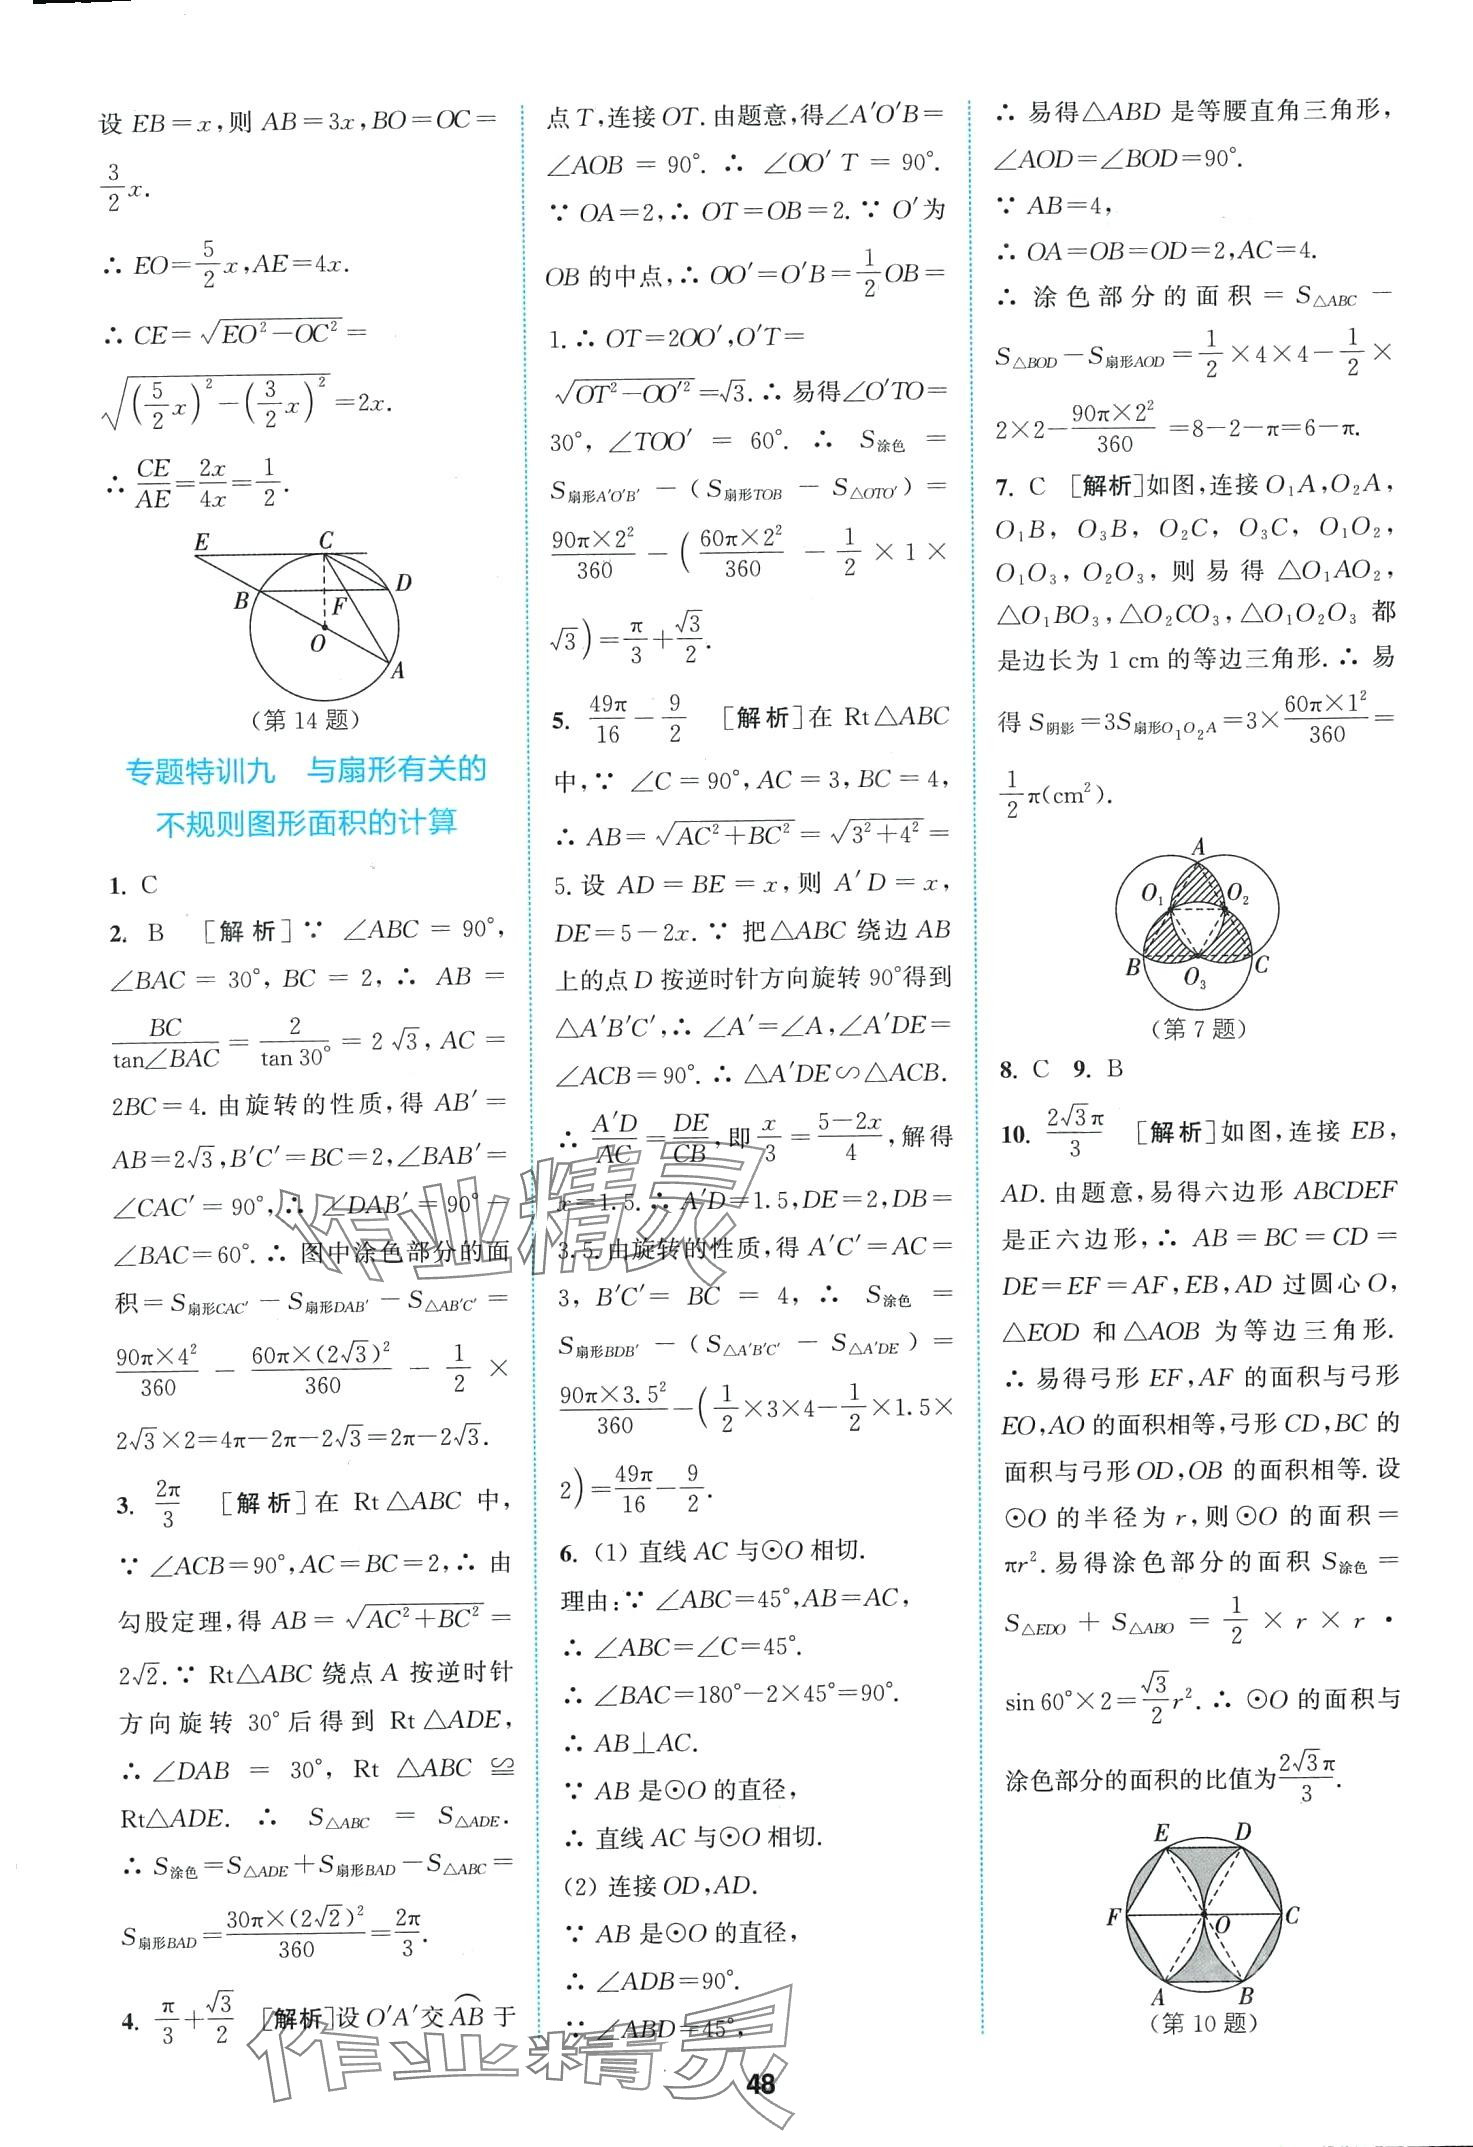 设 EB=x,则 AB=3x,BO=OC=
3/2 x.
∴ EO=5/2 x,AE=4x.
∴ CE=√(EO²-OC²)=
√((5/2 x)²-(3/2 x)²)=2x.
∴ CE/AE=2x/4x=1/2.
E C
B F D
O
A
(第 14 题)
专题特训九 与扇形有关的
不规则图形面积的计算
1. C
2. B [解析]∵ ∠ABC=90°,
∠BAC=30°,BC=2,∴ AB=
BC/tan∠BAC=2/tan 30°=2√3,AC=
2BC=4.由旋转的性质,得 AB′=
AB=2√3,B′C′=BC=2,∠BAB′=
∠CAC′=90°,∴ ∠DAB′=90°-
∠BAC=60°.∴ 图中涂色部分的面
积=S扇形CAC′-S扇形DAB′-S△AB′C′=
90π×4²/360-60π×(2√3)²/360-1/2×
2√3×2=4π-2π-2√3=2π-2√3.
3. 2π/3 [解析]在 Rt△ABC 中,
∵ ∠ACB=90°,AC=BC=2,∴ 由
勾股定理,得 AB=√(AC²+BC²)=
2√2.∵ Rt△ABC 绕点 A 按逆时针
方向旋转 30°后得到 Rt△ADE,
∴ ∠DAB=30°,Rt△ABC≌
Rt△ADE.∴ S△ABC=S△ADE.
∴ S涂色=S△ADE+S扇形BAD-S△ABC=
S扇形BAD=30π×(2√2)²/360=2π/3.
4. π/3+√3/2 [解析]设 O′A′交⌒AB于
点 T,连接 OT.由题意,得∠A′O′B=
∠AOB=90°.∴ ∠OO′T=90°.
∵ OA=2,∴ OT=OB=2.∵ O′为
OB 的中点,∴ OO′=O′B=1/2 OB=
1.∴ OT=2OO′,O′T=
√(OT²-OO′²)=√3.∴ 易得∠O′TO=
30°,∠TOO′=60°.∴ S涂色=
S扇形A′O′B′-(S扇形TOB-S△OTO′)=
90π×2²/360-(60π×2²/360-1/2×1×
√3)=π/3+√3/2.
5. 49π/16-9/2 [解析]在 Rt△ABC
中,∵ ∠C=90°,AC=3,BC=4,
∴ AB=√(AC²+BC²)=√(3²+4²)=
5.设 AD=BE=x,则 A′D=x,
DE=5-2x.∵ 把△ABC 绕边 AB
上的点 D 按逆时针方向旋转 90°得到
△A′B′C′,∴ ∠A′=∠A,∠A′DE=
∠ACB=90°.∴ △A′DE∽△ACB.
∴ A′D/AC=DE/CB,即x/3=(5-2x)/4,解得
x=1.5.∴ A′D=1.5,DE=2,DB=
3.5.由旋转的性质,得 A′C′=AC=
3,B′C′=BC=4,∴ S涂色=
S扇形BDB′-(S△A′B′C′-S△A′DE)=
90π×3.5²/360-(1/2×3×4-1/2×1.5×
2)=49π/16-9/2.
6. (1) 直线 AC 与⊙O 相切.
理由:∵ ∠ABC=45°,AB=AC,
∴ ∠ABC=∠C=45°.
∴ ∠BAC=180°-2×45°=90°.
∴ AB⊥AC.
∵ AB 是⊙O 的直径,
∴ 直线 AC 与⊙O 相切.
(2) 连接 OD,AD.
∵ AB 是⊙O 的直径,
∴ ∠ADB=90°.
∵ ∠ABD=45°,
∴ 易得△ABD 是等腰直角三角形,
∠AOD=∠BOD=90°.
∵ AB=4,
∴ OA=OB=OD=2,AC=4.
∴ 涂色部分的面积=S△ABC-
S△BOD-S扇形AOD=1/2×4×4-1/2×
2×2-90π×2²/360=8-2-π=6-π.
7. C [解析]如图,连接 O₁A,O₂A,
O₁B,O₃B,O₂C,O₃C,O₁O₂,
O₁O₃,O₂O₃,则易得△O₁AO₂,
△O₁BO₃,△O₂CO₃,△O₁O₂O₃ 都
是边长为 1 cm 的等边三角形.∴ 易
得 S阴影=3S扇形O₁O₂A=3×60π×1²/360=
1/2 π(cm²).
A
O₁ O₂
B O₃ C
(第 7 题)
8. C 9. B
10. 2√3π/3 [解析]如图,连接 EB,
AD.由题意,易得六边形 ABCDEF
是正六边形,∴ AB=BC=CD=
DE=EF=AF,EB,AD 过圆心 O,
△EOD 和△AOB 为等边三角形.
∴ 易得弓形 EF,AF 的面积与弓形
EO,AO 的面积相等,弓形 CD,BC 的
面积与弓形 OD,OB 的面积相等.设
⊙O 的半径为 r,则⊙O 的面积=
πr².易得涂色部分的面积 S涂色=
S△EDO+S△ABO=1/2×r×r·
sin 60°×2=√3/2 r².∴ ⊙O 的面积与
涂色部分的面积的比值为2√3π/3.
E D
F O C
A B
(第 10 题)
作业精灵
作业精灵
48